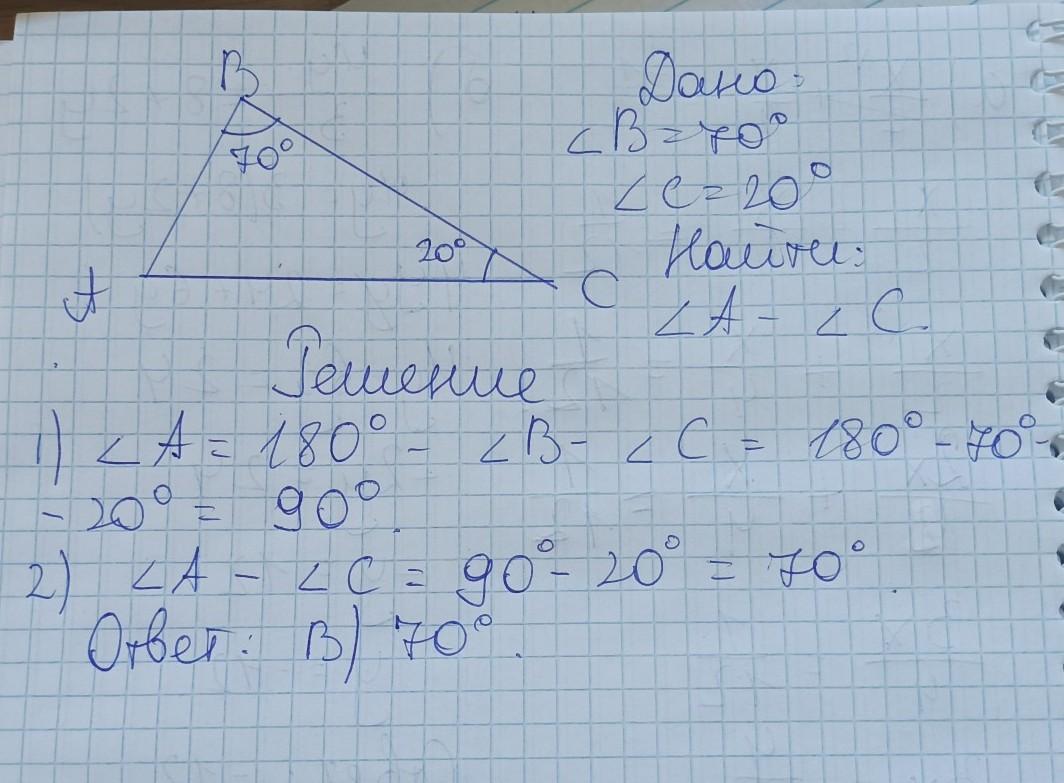 B
70°
20°
A
C
Дано:
∠B = 70°
∠C = 20°
Найти:
∠A - ∠C.
Решение
1) ∠A = 180° - ∠B - ∠C = 180° - 70° -
- 20° = 90°.
2) ∠A - ∠C = 90° - 20° = 70°.
Ответ: В) 70°.